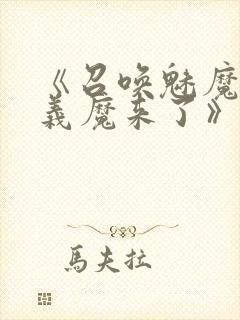 《召唤魅魔
義魔来了》
馬夫拉